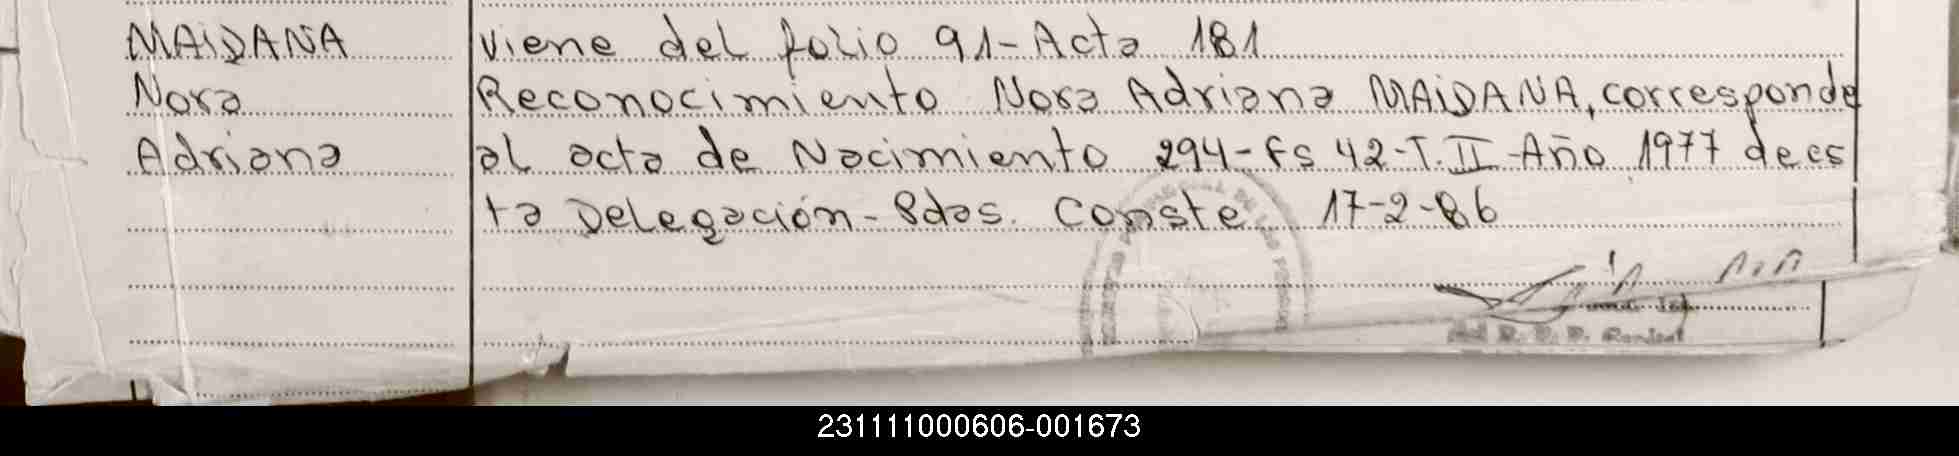 MAIDANA
Nora
Adriana
viene del folio 91-Acta 181
Reconocimiento Nora Adriana MAIDANA, corresponde
al acta de Nacimiento 294-Fs 42-T. II-Año 1977 de es
ta Delegación-Pdas. Conste 17-2-86
231111000606-001673